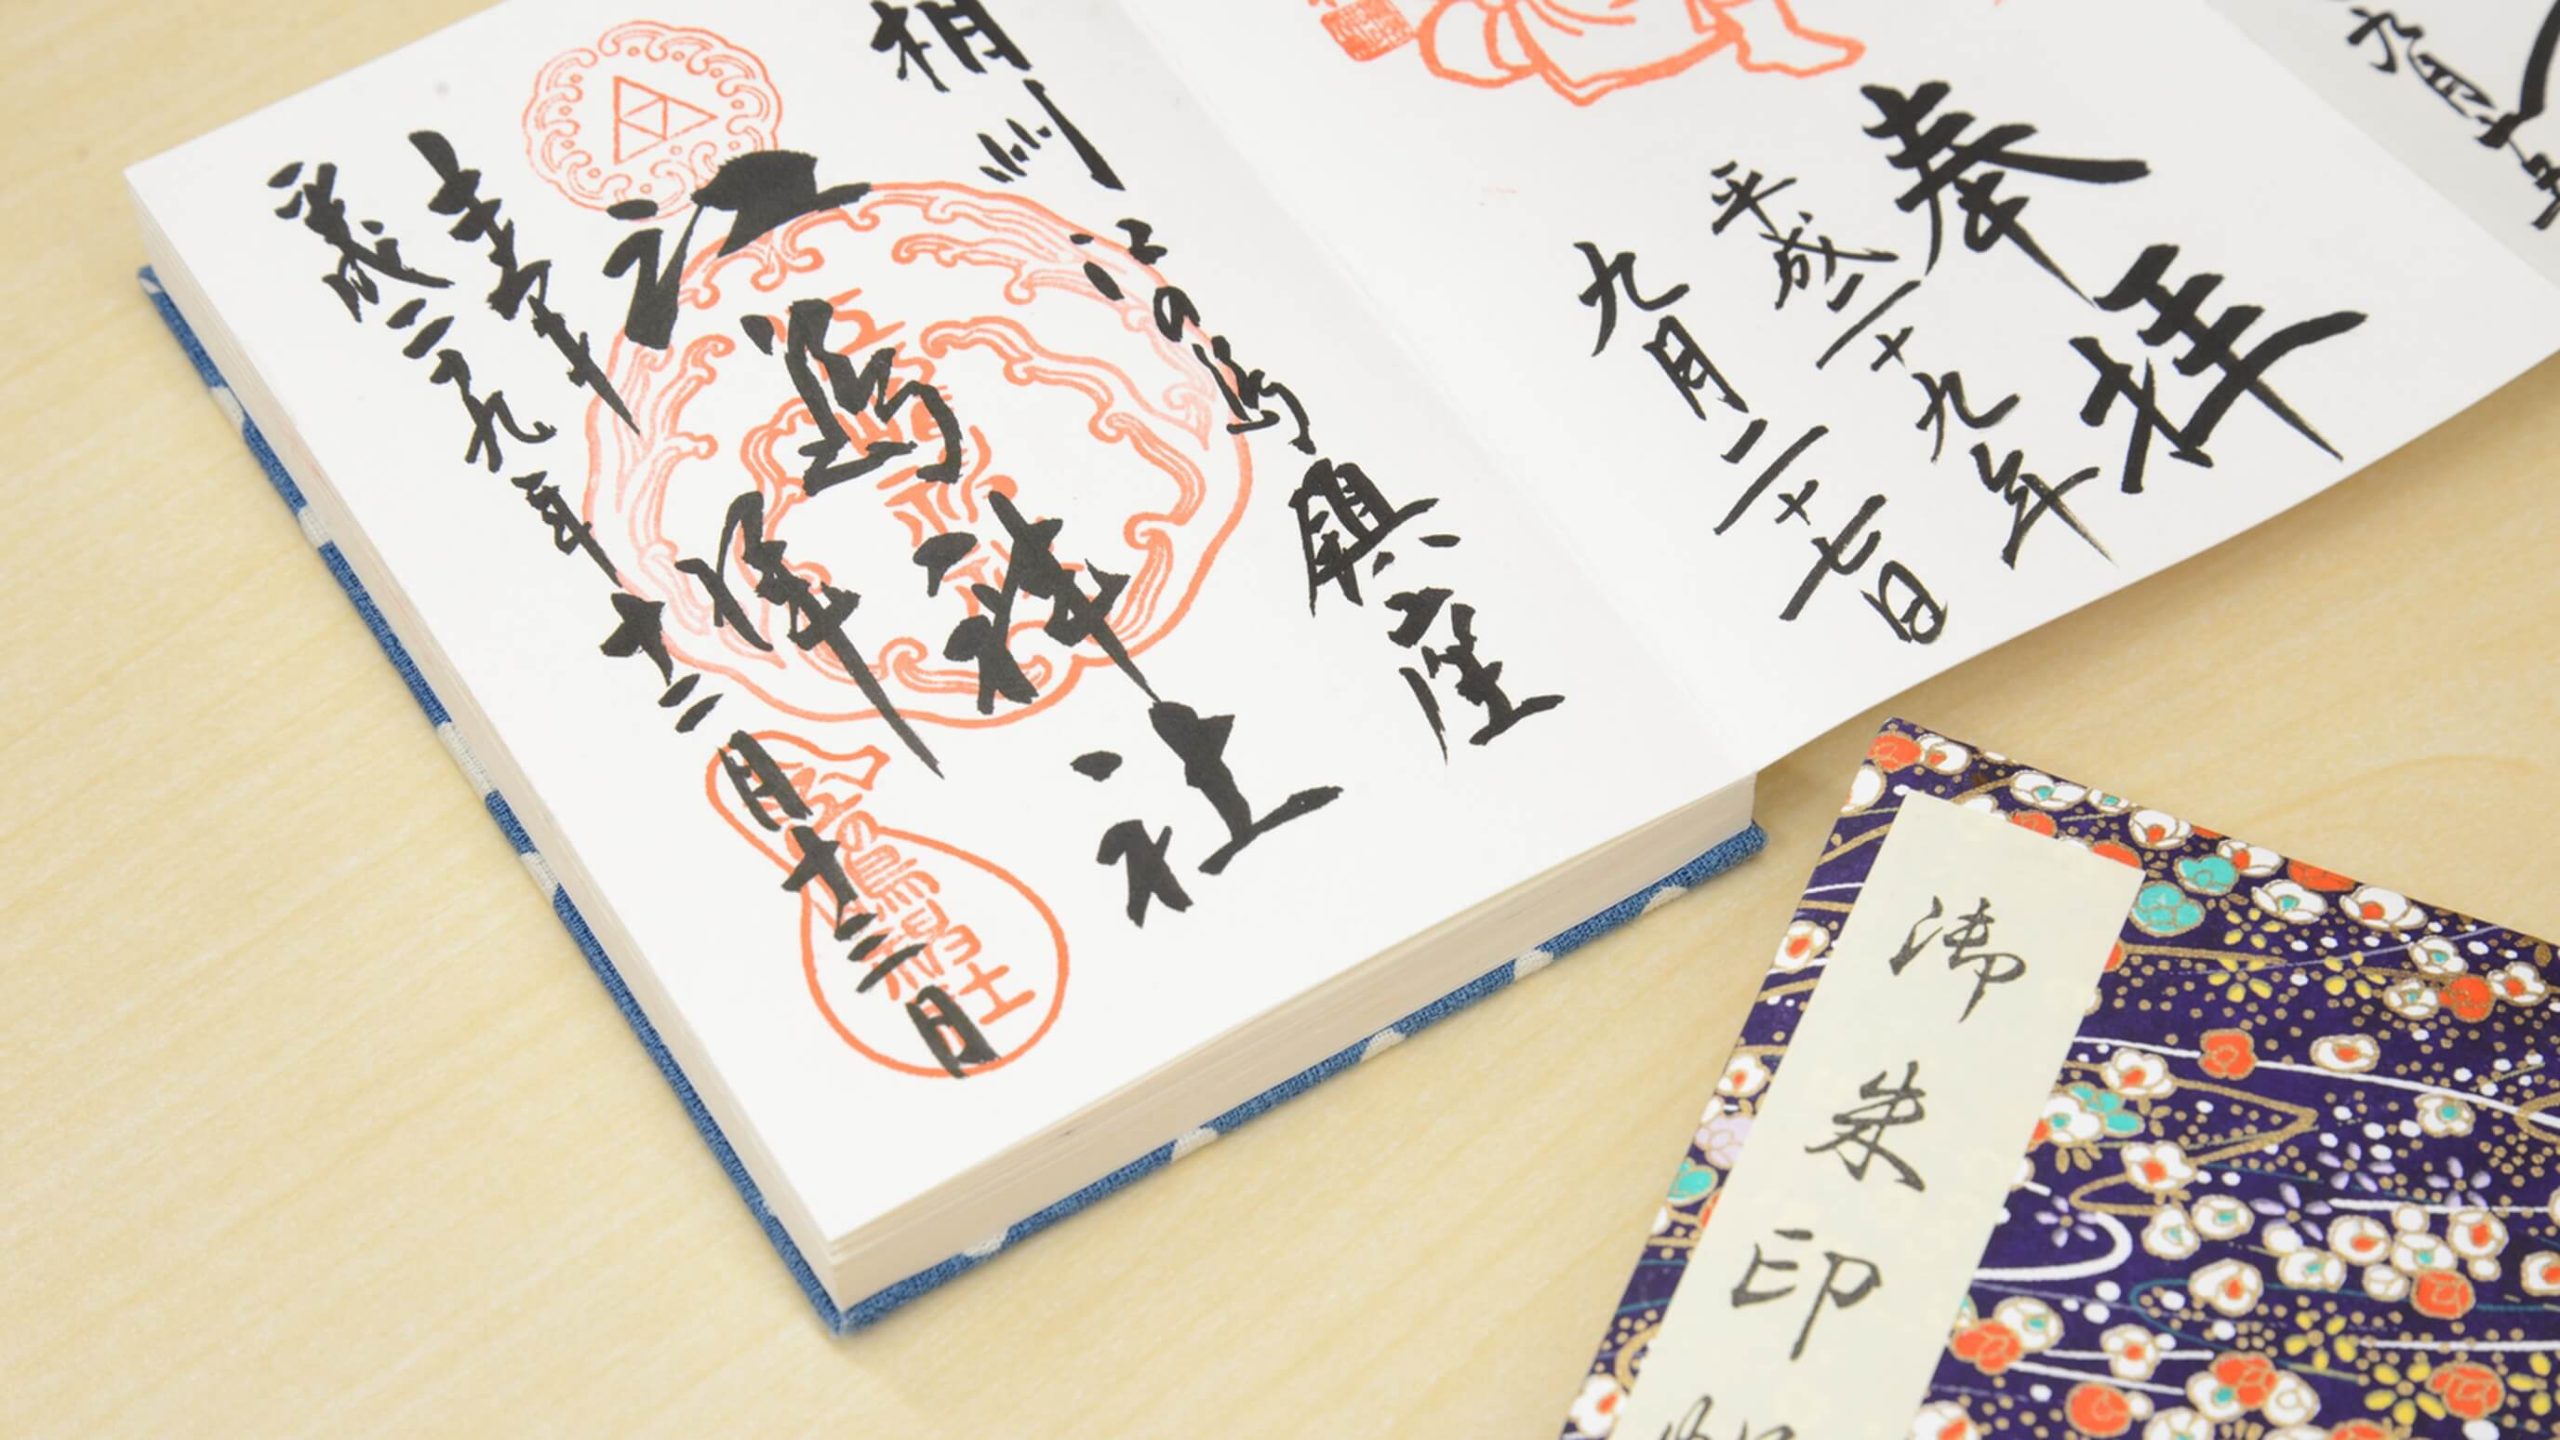 奉拝
平成二十九年
九月二十七日
相州江の島鎮座
江島神社
奉拝
平成二十九年十二月十三日
御朱印